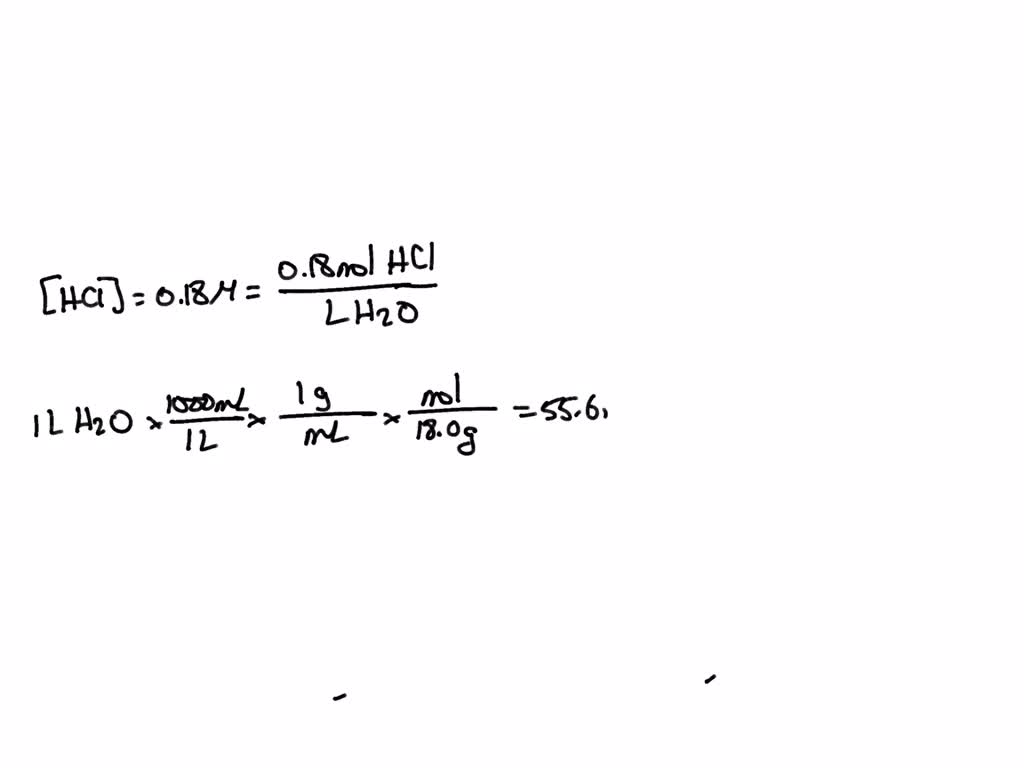 [HCl] = 0.18M = 0.18mol HCl / L H2O
1L H2O × 1000mL / 1L × 1g / mL × mol / 18.0g = 55.6